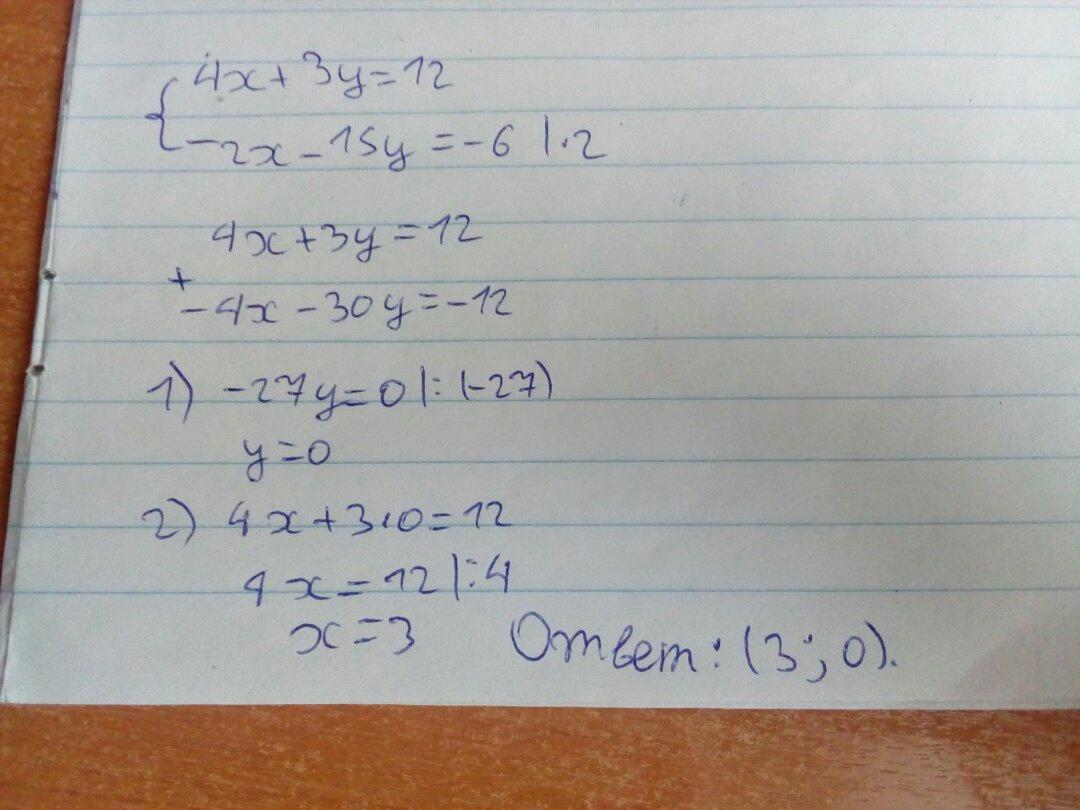 { 4x+3y=12
-2x-15y=-6 |·2
4x+3y=12
+
-4x-30y=-12
1) -27y=0 |: (-27)
y=0
2) 4x+3·0=12
4x=12 |:4
x=3 Ответ: (3; 0).